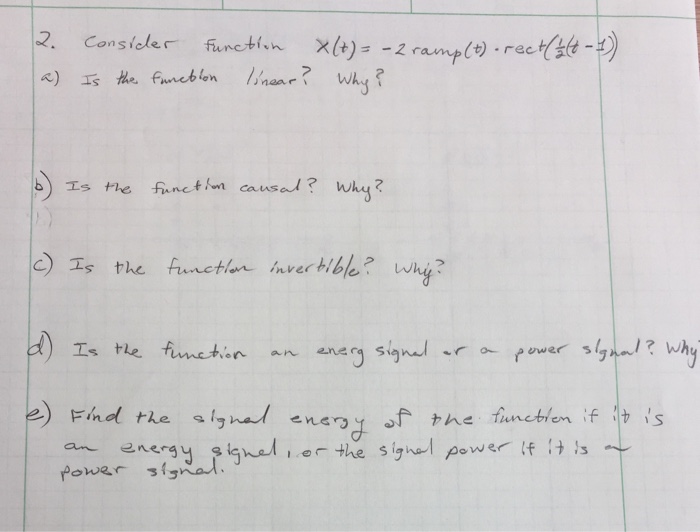 2. Consider function x(t) = -2 ramp(t) · rect(½(t-1))
a) Is the function linear? Why?
b) Is the function causal? Why?
c) Is the function invertible? Why?
d) Is the function an energ signal or a power signal? Why
e) Find the signal energy of the function if it is
an energy signal, or the signal power if it is a
power signal.